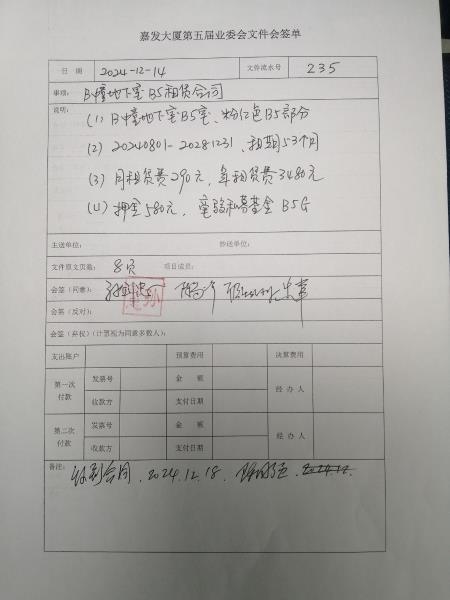 嘉发大厦第五届业委会文件会签单
日 期 2024-12-14 文件流水号 235
事项: B幢地下室B5租赁合同
说明:
(1) B幢地下室B5室、粉红色B5部分
(2) 20240801-20281231、租期53个月
(3) 月租赁费290元，年租赁费3480元
(4) 押金580元，
主送单位: 抄送单位:
文件原文页数: 8页 项目成员:
会签（同意）:
会签（反对）:
会签（弃权）(计票视为同意多数人):
支出账户 预算费用 决算费用
第一次付款 发票号 金 额 经 办 人
收款方 支付日期
第二次付款 发票号 金 额 经 办 人
收款方 支付日期
备注: 收到合同. 2024.12.18.